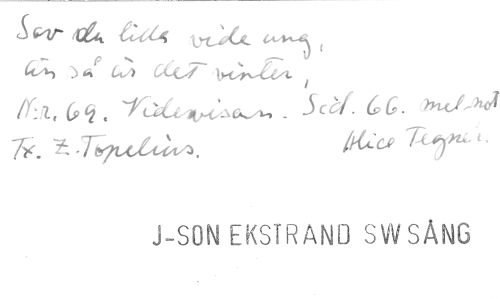 Sov du lilla vide ung,
än så är det vinter,
N:r. 69. Videvisan. Sid. 66. mel. not
Tx. Z. Topelius. Alice Tegnér.
J-SON EKSTRAND SW SÅNG